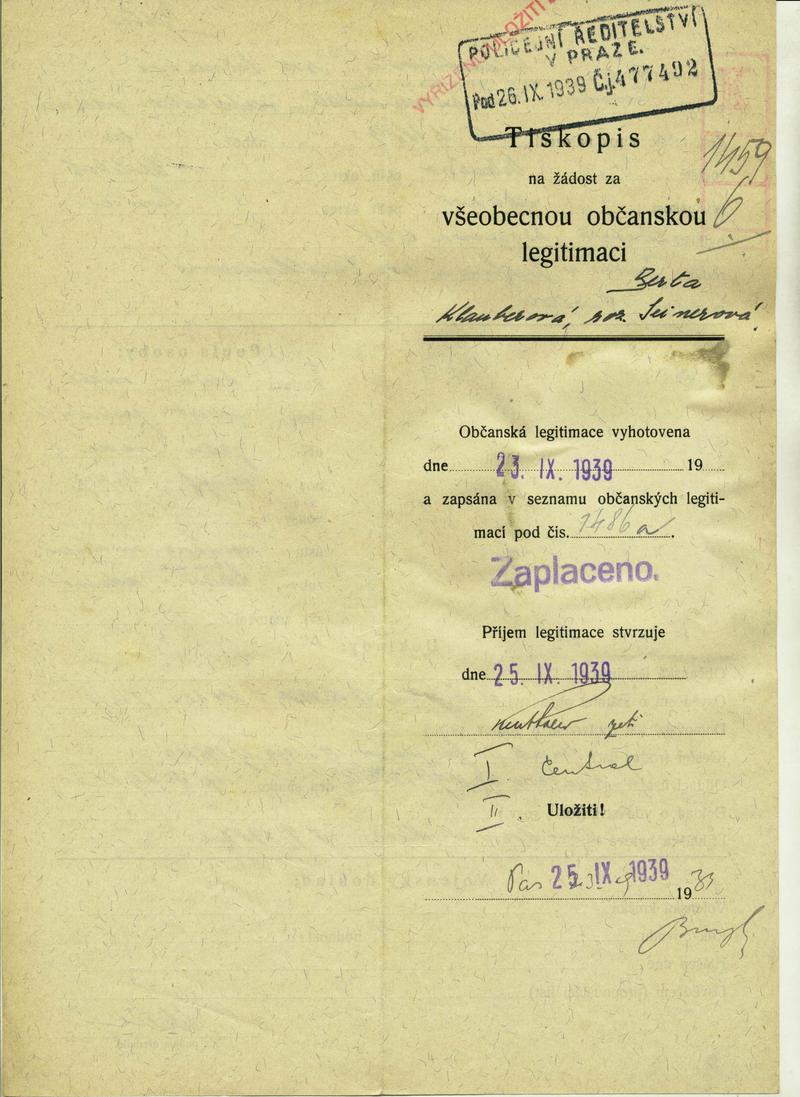 VYŘÍZENO ULOŽITI
POLICEJNÍ ŘEDITELSTVÍ
V PRAZE.
Pod 26.IX.1939 Č.j. 477492
Tiskopis
1459
na žádost za
všeobecnou občanskou
6
legitimaci
Berta
Klauberová, roz. Seinerová
Občanská legitimace vyhotovena
dne 23. IX. 1939 19
a zapsána v seznamu občanských legiti-
mací pod čís. 1486a.
Zaplaceno.
Příjem legitimace stvrzuje
dne 25. IX. 1939
I. Central
II. Uložiti!
Pas 25. IX 1939
19 39